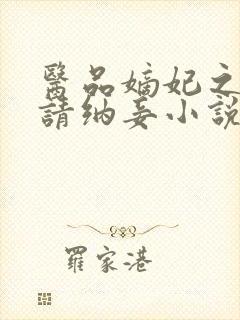 醫品嫡妃之
請納妾小説
羅家港